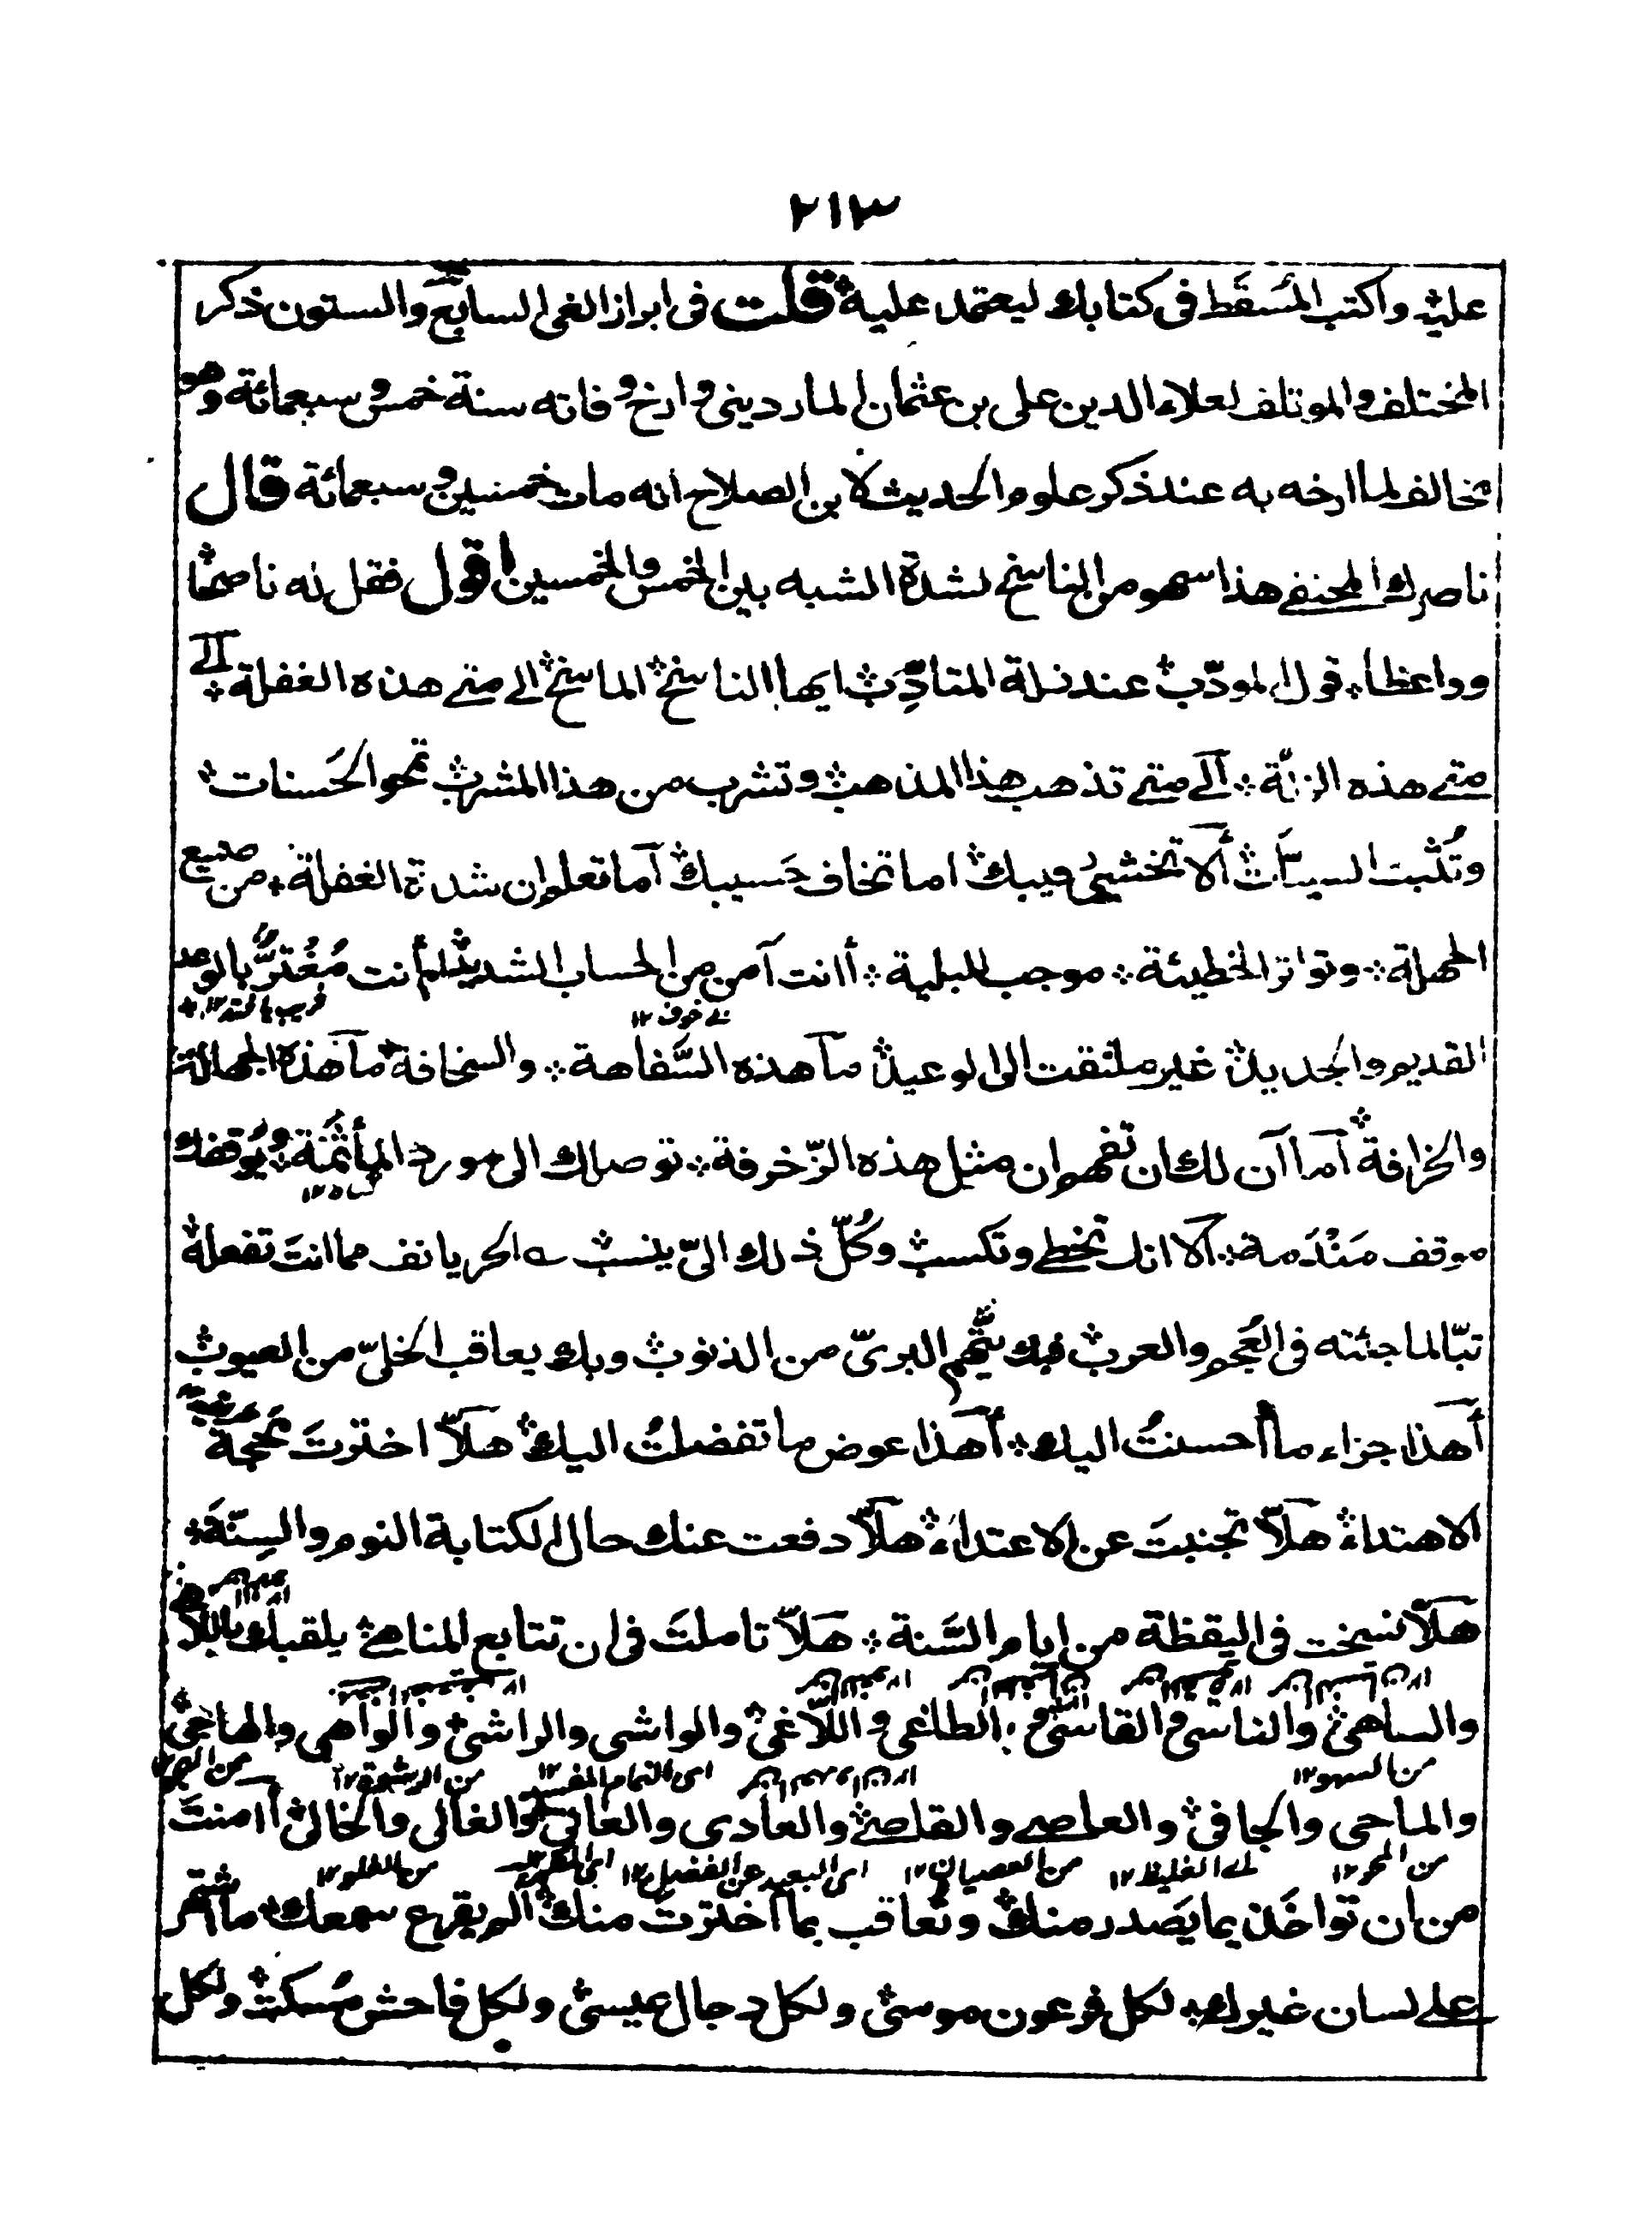 ٢١٣
عليه واكتب المسقط فى كتابك ليعتمد عليه قلت فى ابراز الغى السابع والستون ذكر
المختلف والموتلف لعلاء الدين على بن عثمان الماردينى وارخ وفاته سنة خمس وسبعمائة وهو
مخالف لما ارخه به عند ذكر علوم الحديث لابن الصلاح انه مات خمسين وسبعمائة قال
ناصرك المختفے هذا سهو من الناسخ لشدة الشبه بين الخمس والخمسين اقول فقل له ناصحًا
وواعظا قول المودّب عند زلة المتادِّب ايها الناسخ الماسخ الے متے هذه الغفلة الے
متے هذه الزلّة الے متے تذهب هذا المذهب وتشرب من هذا المشرب تمحو الحَسنات
وتُثبت السيئات ألا تخشى رقيبك اما تخاف حَسيبك اما تعلم ان شدة الغفلة من صنيع
الجهلة وتواتر الخطيئة موجب للبلية أانت آمن من الحساب الشديد ام أنت مُغْتَرٌّ بالوعد
بے خوف ١٢
القديم والجديد غير ملتفت الى الوعيد ما هذه السَّفاهة والسخافة ما هذه الجهالة
والخرافة أما آن لك ان تفهم ان مثل هذه الزّخرفة توصلك الى مورد المأثمَة ويُوقفك
گناه ١٢
موقف مَنْدَمة ألا انك تخطے وتكسب وكُلّ ذلك الىّ ينسب ے الحر يانف مما انتَ تفعله
تبّا لما جئته فى العُجم والعرب فبك يتّهم البرىّ من الذنوب وبك يعاقب الخلىّ من العيوب
أهذا جزاء ما أحسنتُ اليك أهذا عوض ما تفضلتُ اليك هلّا اخترتَ محجة
الاهتداء هلّا تجنبتَ عن الاعتداء هلّا دفعت عنك حال الكتابة النوم والسِنَة
هلّا نسخت فى اليقظة من ايام السَّنة هَلّا تاملتَ فى ان تتابع المناهے يلقبك باللاهى
والساهى والناسى والقاسى والطاغى واللّاغى والواشى والراشى والواهى والهاجى
من السهو ١٢ اى النمام المفسد ١٢ من الرشوة ١٢
والماحى والجافى والعاصے والقاصے والعادى والعاتى والغالى والخالى أأمنتَ
من المحو ١٢ اے الغليظ ١٢ من العصيان ١٢ اى البعيد عن الفضيل ١٢ من الغلو ١٢
من ان تواخَذ بما يصدر منك وتعاقب بما اخترتَ منك الم يقرع سمعك ما اشتهر
علے لسان غيرك لكل فرعون موسى ولكل دجال عيسى ولكل فاحش مُسكت ولكل